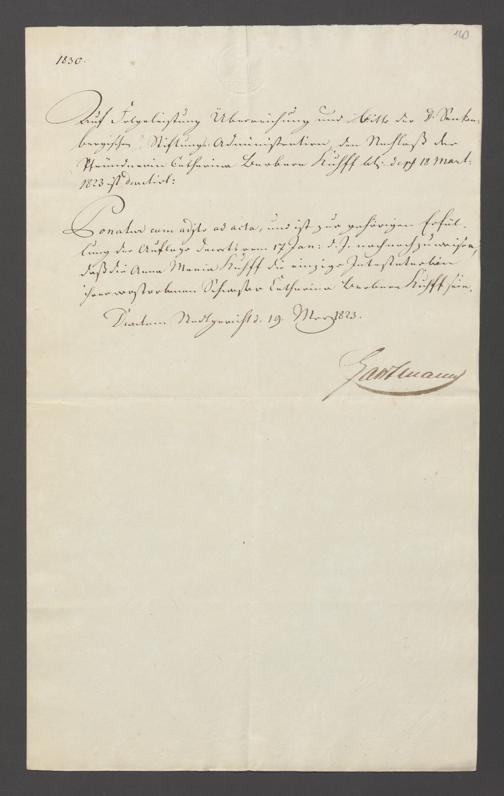 110
1830.
Auf Folgeleistung Überreichung und Bitte der Dr. Senken-
bergischen Stiftungs Administration, den Nachlaß der
Pfründnerin Catharina Barbara Kuhff btr: de pst 18 Mart:
1823 ist Decretirt:
Ponatur cum adjto ad acta, und ist zur gehörigen Erfül-
lung der Auflage Decrets vom 17 Jan: d. J. noch nachzuweisen,
daß die Anna Maria Kuhff die einzige Intestaterbin
ihrer verstorbenen Schwester Catharina Barbara Kuhff sey.
Dictum Stadtgericht d. 19. Merz 1823.
Hartmann